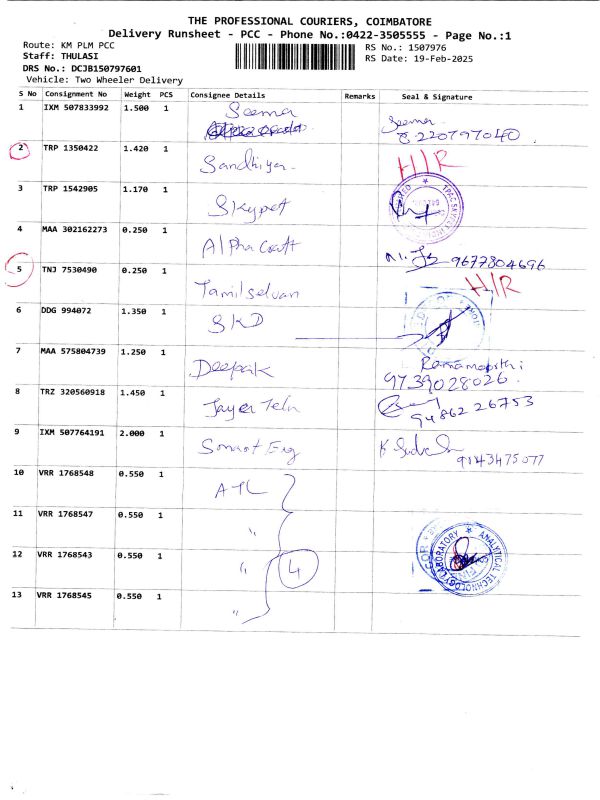 THE PROFESSIONAL COURIERS, COIMBATORE
Delivery Runsheet - PCC - Phone No.:0422-3505555 - Page No.:1
Route: KM PLM PCC
RS No.: 1507976
Staff: THULASI
RS Date: 19-Feb-2025
DRS No.: DCJB150797601
Vehicle: Two Wheeler Delivery
S No Consignment No Weight PCS Consignee Details Remarks Seal & Signature
1 IXM 507833992 1.500 1 Seema Seema
8220797040
2 TRP 1350422 1.420 1 Sandhiya H/R
3 TRP 1542905 1.170 1 Skypet
4 MAA 302162273 0.250 1 Alpha Craft 9677804696
5 TNJ 7530490 0.250 1 Tamilselvan H/R
6 DDG 994072 1.350 1 SKD
7 MAA 575804739 1.250 1 Deepak
9739028026
8 TRZ 320560918 1.450 1 94862 26753
9 IXM 507764191 2.000 1 9143475077
10 VRR 1768548 0.550 1 ATL
11 VRR 1768547 0.550 1 "
12 VRR 1768543 0.550 1 " 4
13 VRR 1768545 0.550 1 "
ANALYTICAL TECHNOLOGY LABORATORY